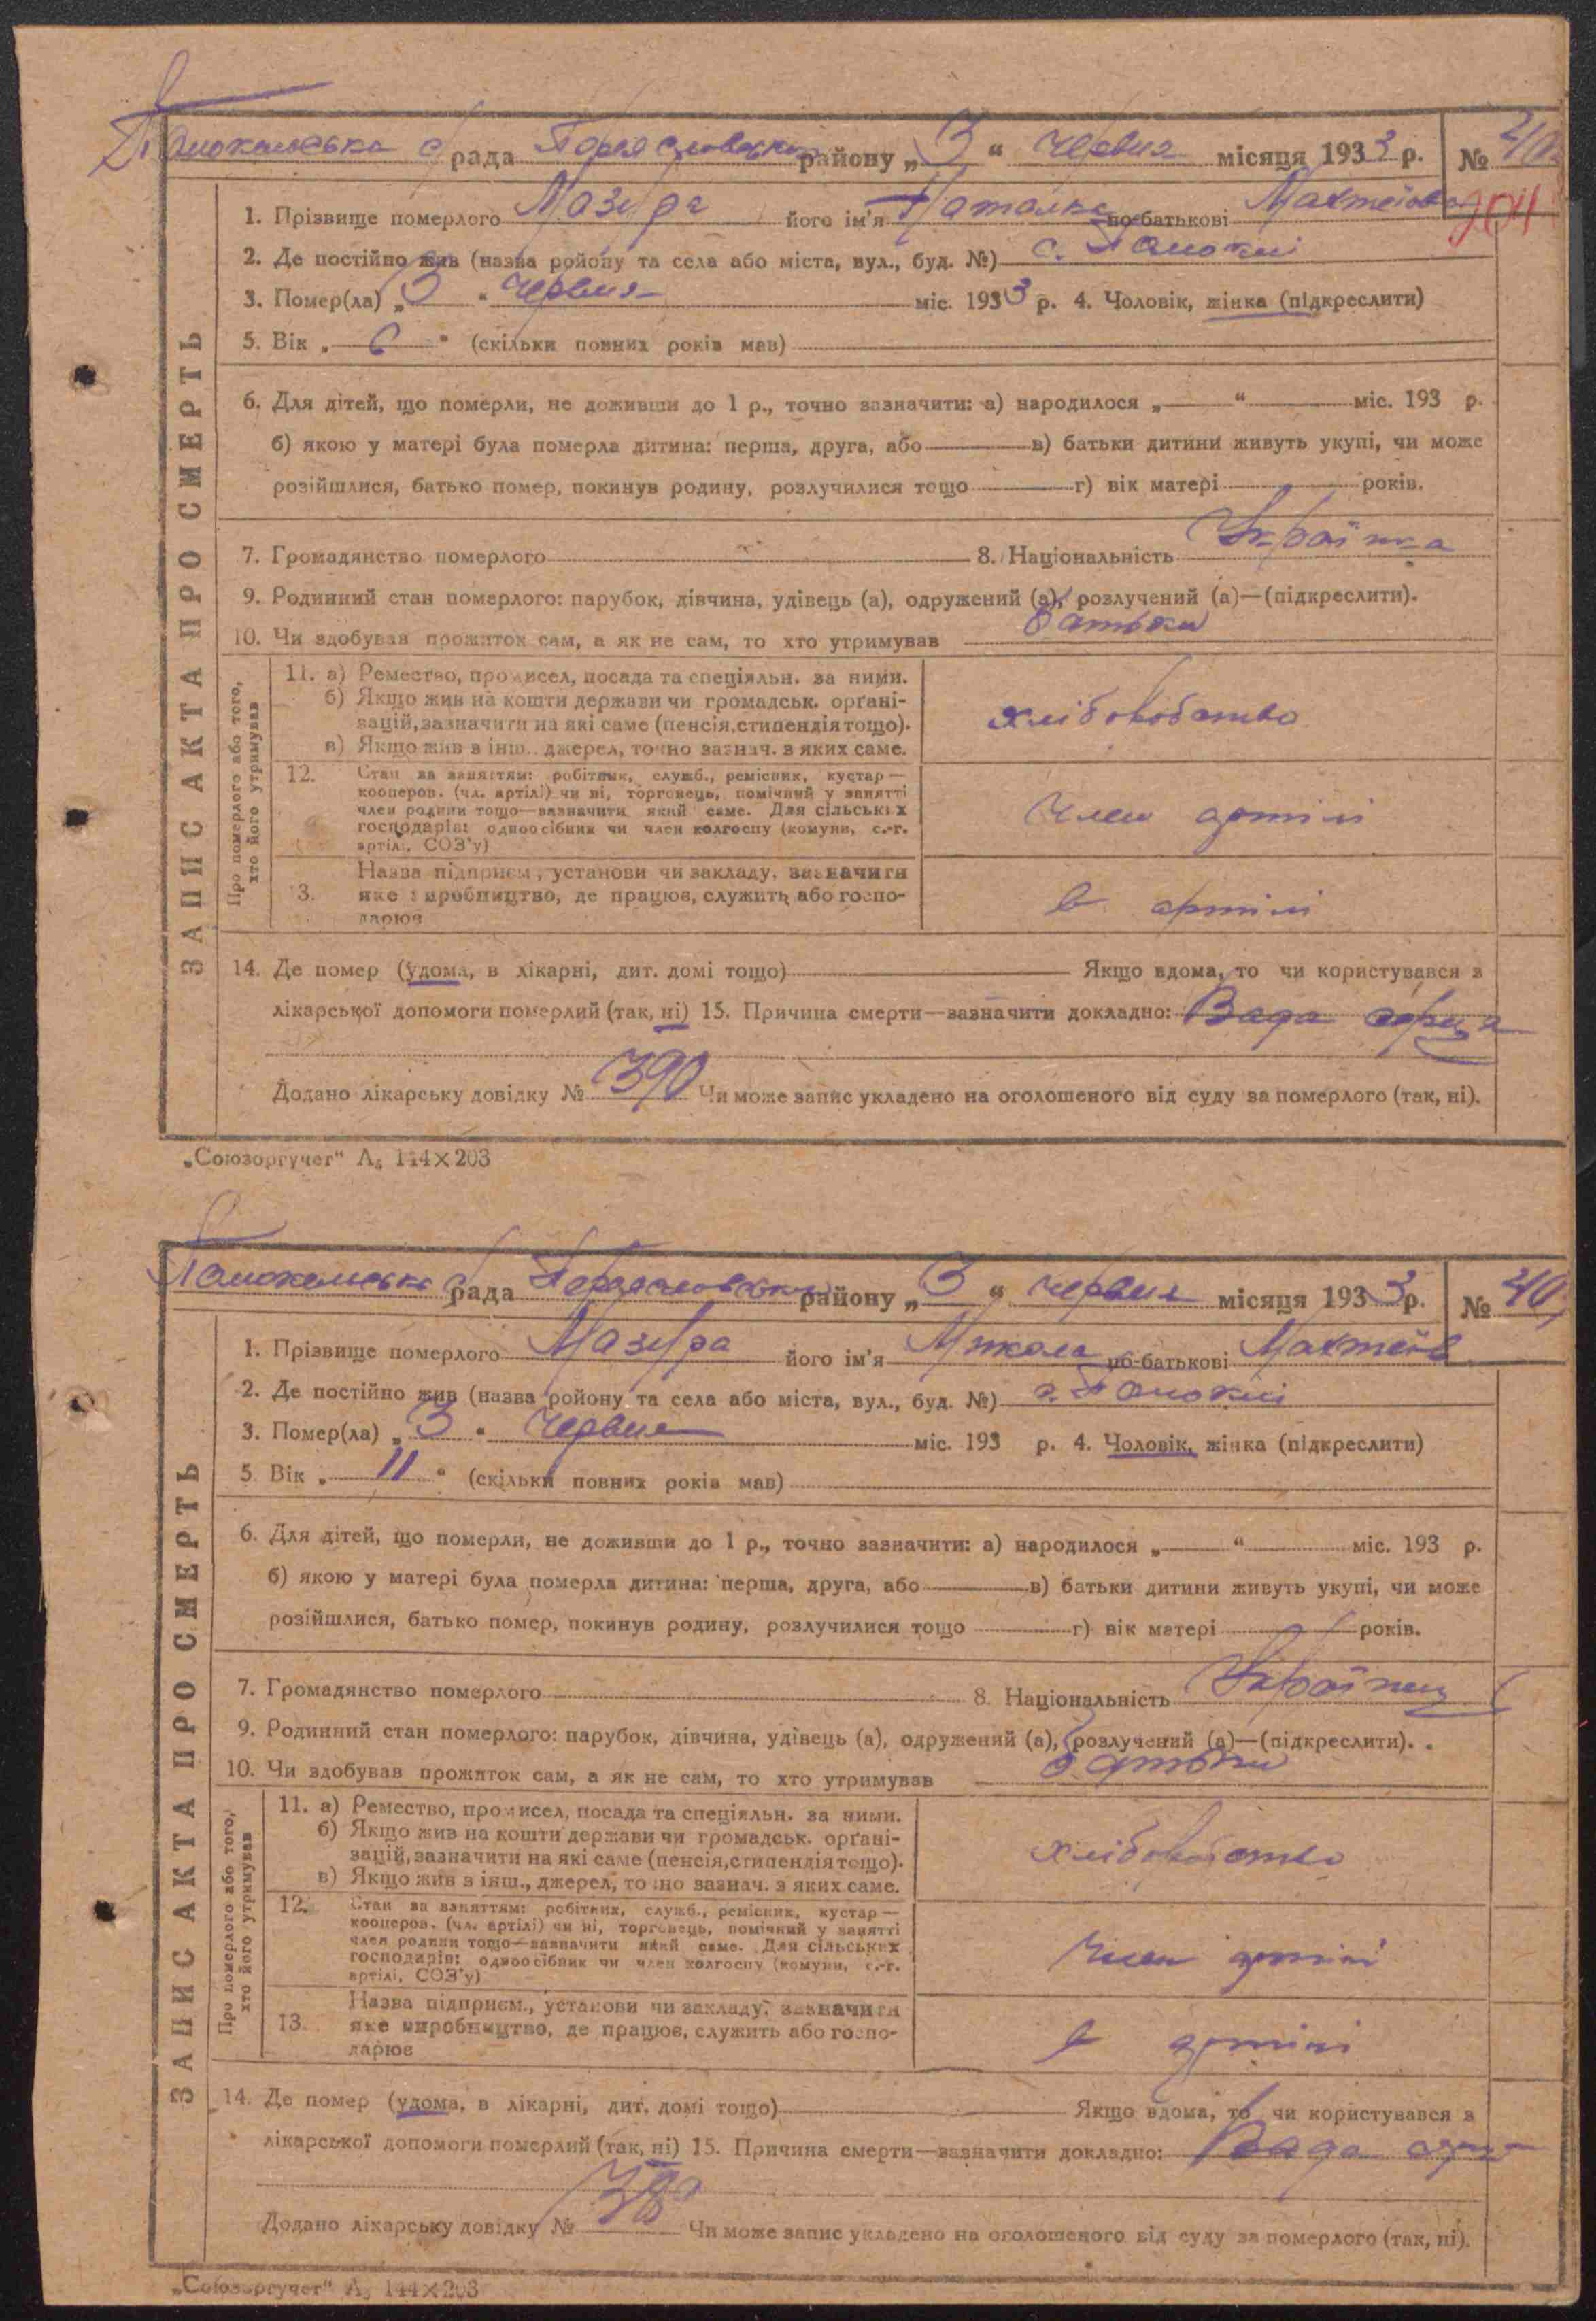 рада районну „ 3 “ червня місяця 1933 р. № 40
204
ЗАПИС АКТА ПРО СМЕРТЬ
1. Прізвище померлого Мазура його ім'я Наталка по-батькові
2. Де постійно жив (назва ройону та села або міста, вул., буд. №) с.
3. Помер(ла) „ 3 “ червня міс. 1933 р. 4. Чоловік, жінка (підкреслити)
5. Вік „ 6 “ (скільки повних років мав)
6. Для дітей, що померли, не доживши до 1 р., точно зазначити: а) народилося „ “ міс. 193 р.
б) якою у матері була померла дитина: перша, друга, або в) батьки дитини живуть укупі, чи може
розійшлися, батько помер, покинув родину, розлучилися тощо г) вік матері років.
7. Громадянство померлого 8. Національність Українка
9. Родинний стан померлого: парубок, дівчина, удівець (а), одружений (а), розлучений (а)—(підкреслити).
10. Чи здобував прожиток сам, а як не сам, то хто утримував батьки
Про померлого або того, хто його утримував
11. а) Ремество, промисел, посада та спеціяльн. за ними.
б) Якщо жив на кошти держави чи громадськ. орґані-
зацій, зазначити на які саме (пенсія, стипендія тощо).
в) Якщо жив з інш. джерел, точно зазнач. з яких саме.
хліборобство
12. Стан за заняттям: робітник, служб., ремісник, кустар —
кооперов. (чл. артілі) чи ні, торговець, помічний у занятті
член родини тощо—зазначити який саме. Для сільських
господарів: одноосібник чи член колгоспу (комуни, с.-г.
артілі, СОЗ'у)
член артілі
13. Назва підприєм., установи чи закладу, зазначити
яке виробництво, де працює, служить або госпо-
дарює
в артілі
14. Де помер (удома, в лікарні, дит. домі тощо) Якщо вдома, то чи користувався з
лікарської допомоги померлий (так, ні) 15. Причина смерти—зазначити докладно: Вада серця
Додано лікарську довідку № 390 Чи може запис укладено на оголошеного від суду за померлого (так, ні).
„Союзоргучет“ А₅ 144×203
рада району „ 3 “ червня місяця 1933 р. № 40
ЗАПИС АКТА ПРО СМЕРТЬ
1. Прізвище померлого Мазура його ім'я Микола по-батькові
2. Де постійно жив (назва ройону та села або міста, вул., буд. №) с.
3. Помер(ла) „ 3 “ червня міс. 193 р. 4. Чоловік, жінка (підкреслити)
5. Вік „ 11 “ (скільки повних років мав)
6. Для дітей, що померли, не доживши до 1 р., точно зазначити: а) народилося „ “ міс. 193 р.
б) якою у матері була померла дитина: перша, друга, або в) батьки дитини живуть укупі, чи може
розійшлися, батько помер, покинув родину, розлучилися тощо г) вік матері років.
7. Громадянство померлого 8. Національність Українец
9. Родинний стан померлого: парубок, дівчина, удівець (а), одружений (а), розлучений (а)—(підкреслити).
10. Чи здобував прожиток сам, а як не сам, то хто утримував батьки
Про померлого або того, хто його утримував
11. а) Ремество, промисел, посада та спеціяльн. за ними.
б) Якщо жив на кошти держави чи громадськ. орґані-
зацій, зазначити на які саме (пенсія, стипендія тощо).
в) Якщо жив з інш., джерел, точно зазнач. з яких саме.
хліборобство
12. Стан за заняттям: робітник, служб., ремісник, кустар —
кооперов. (чл. артілі) чи ні, торговець, помічний у занятті
член родини тощо—зазначити який саме. Для сільських
господарів: одноосібник чи член колгоспу (комуни, с.-г.
артілі, СОЗ'у)
член артілі
13. Назва підприєм., установи чи закладу, зазначити
яке виробництво, де працює, служить або госпо-
дарює
в артілі
14. Де помер (удома, в лікарні, дит. домі тощо) Якщо вдома, то чи користувався з
лікарської допомоги померлий (так, ні) 15. Причина смерти—зазначити докладно: Вада серця
Додано лікарську довідку № Чи може запис укладено на оголошеного від суду за померлого (так, ні).
„Союзоргучет“ А₅ 144×203